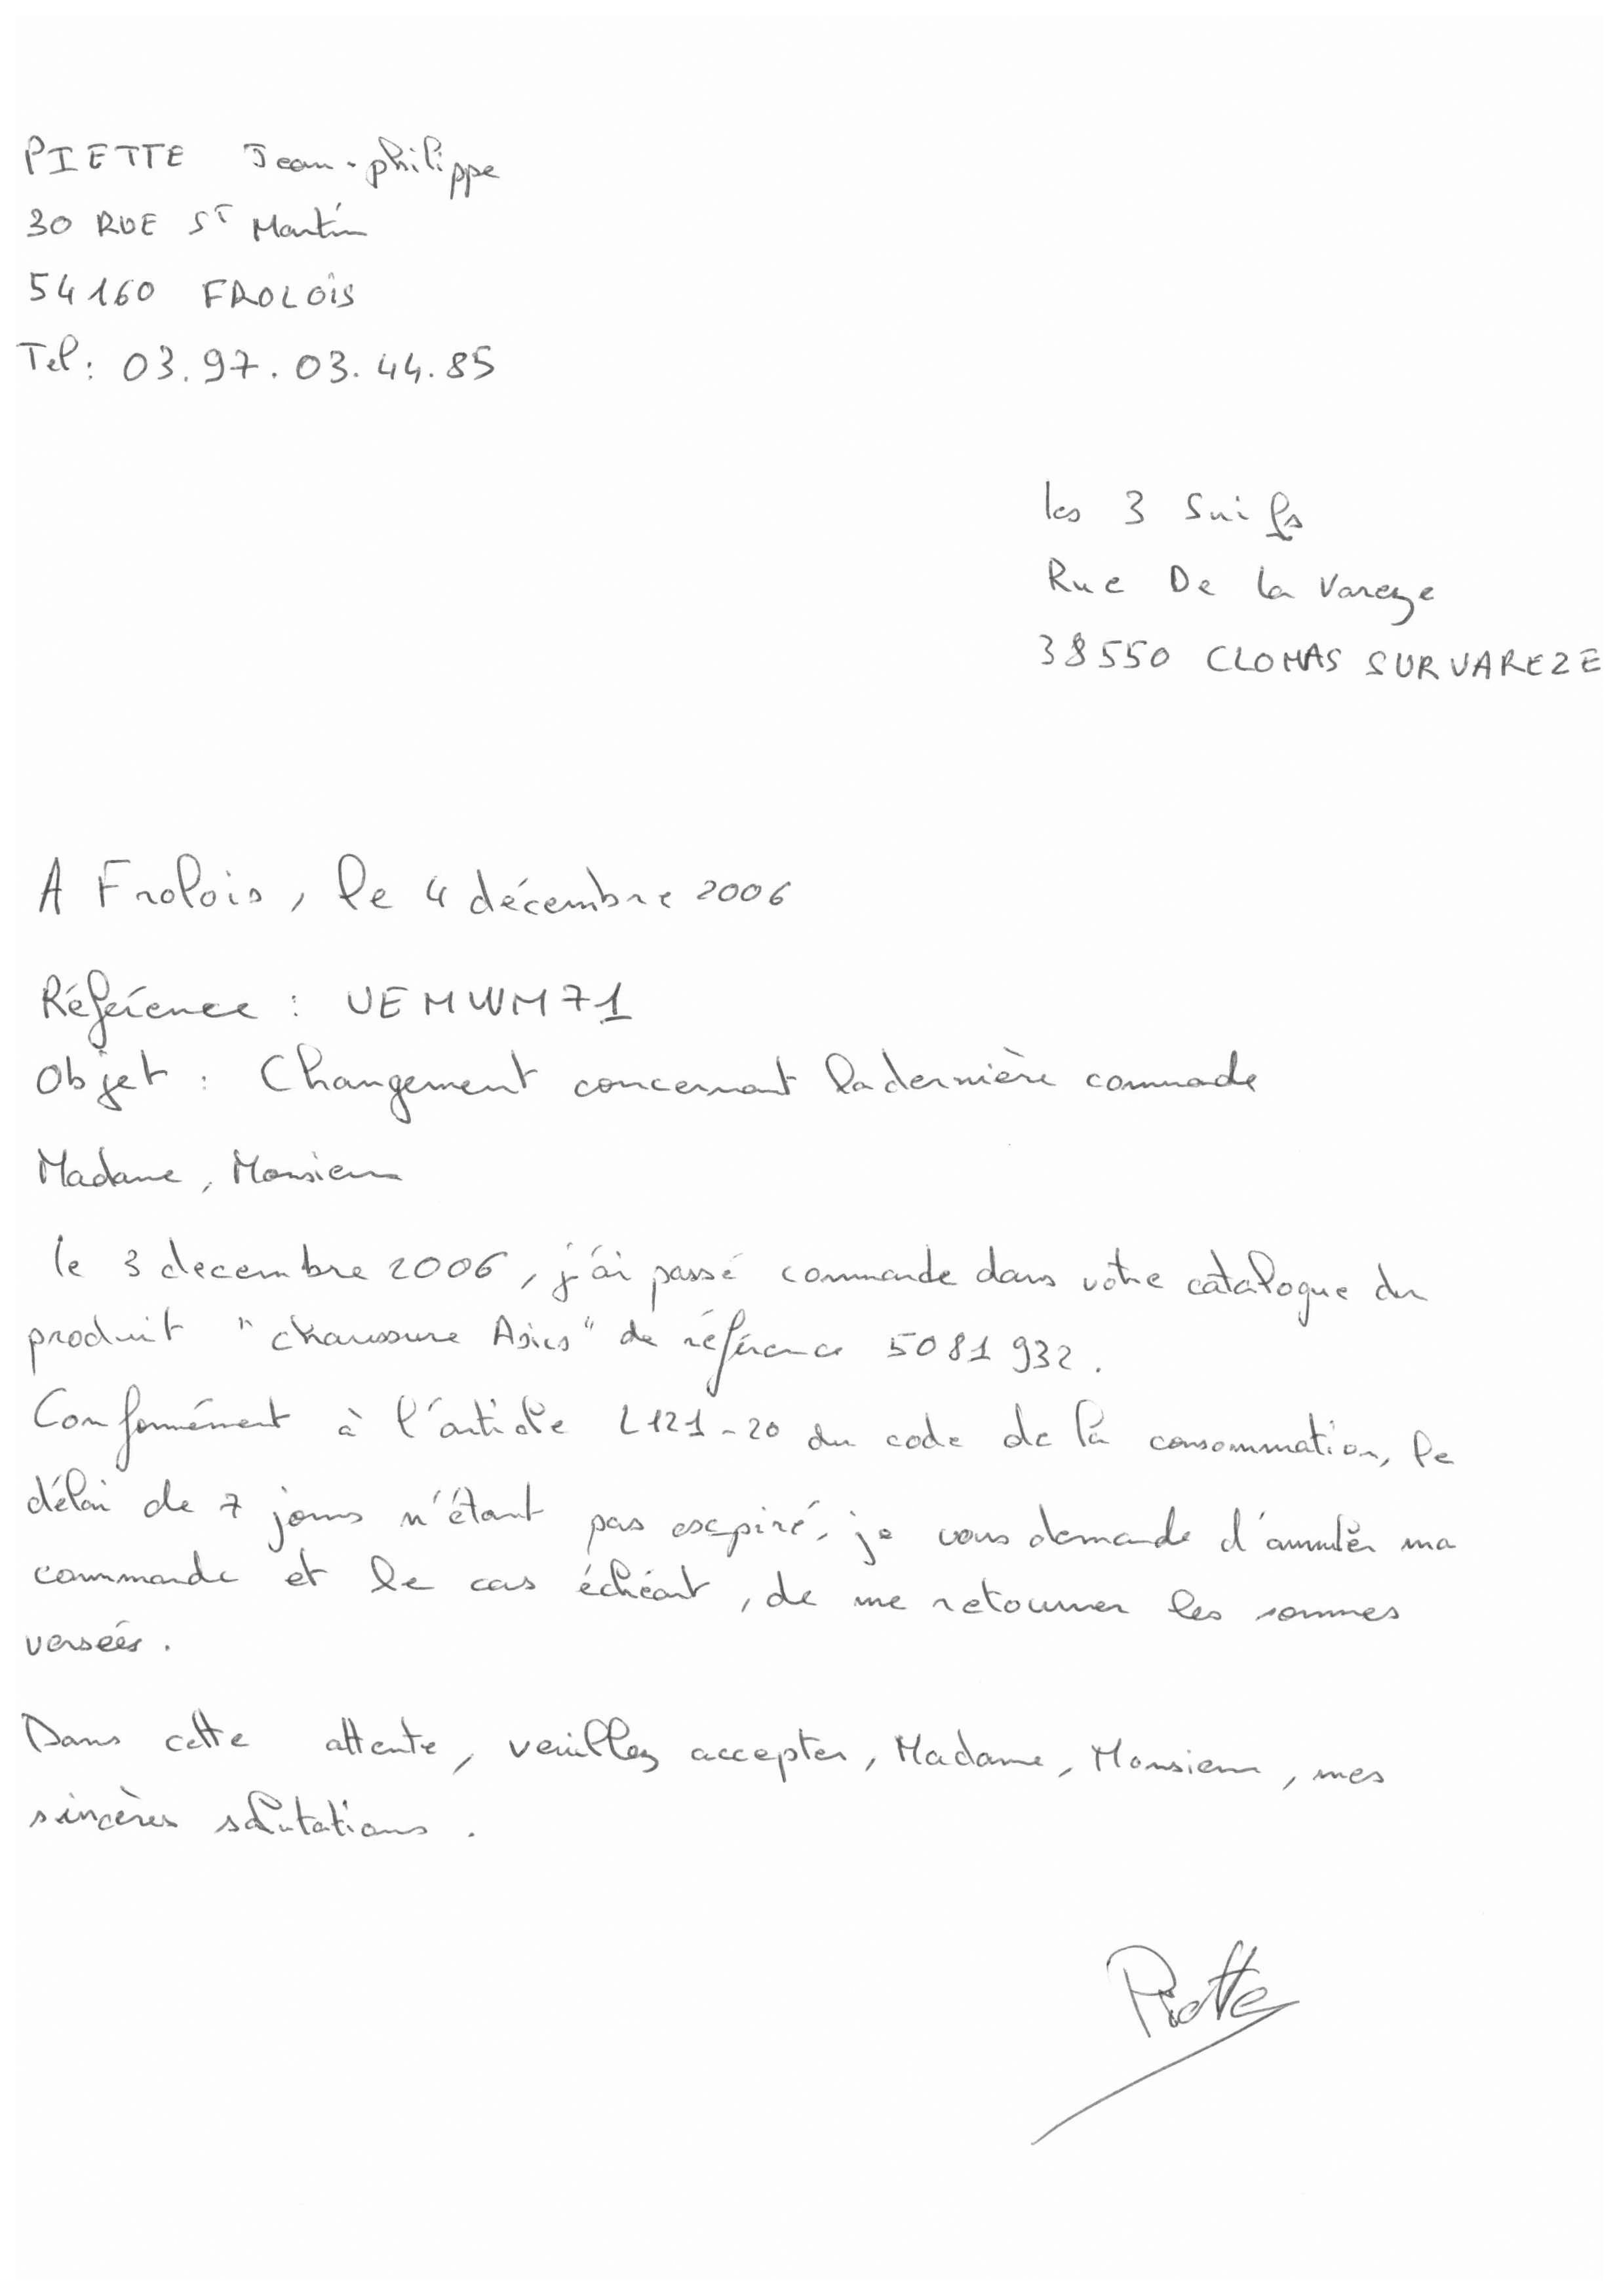 PIETTE Jean-philippe
30 RUE ST Martin
54160 FROLOIS
Tel: 03.97.03.44.85
les 3 Suifs
Rue De la Vareze
38550 CLONAS SUR VAREZE
A Frolois, le 4 décembre 2006
Référence : UEMWM71
Objet : Changement concernant la dernière commade
Madame, Monsieur
le 3 decembre 2006, j'ai passé commande dans votre catalogue du
produit "chaussure Asics" de référence 5081932.
Conformément à l'article L121-20 du code de la consommation, le
délai de 7 jours n'étant pas expiré, je vous demande d'annuler ma
commande et le cas échéant, de me retourner les sommes
versées.
Dans cette attente, veuillez accepter, Madame, Monsieur, mes
sincères salutations.
Piette